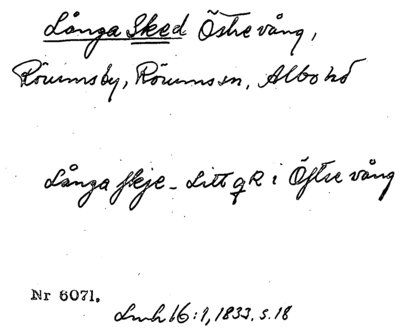 Långa Sked Östre vång,
Rörumsby, Rörums sn, Albo hd
Långa skje - Litt qR i Östre vång
Nr 6071.
Lmh 16:1, 1833. s. 18